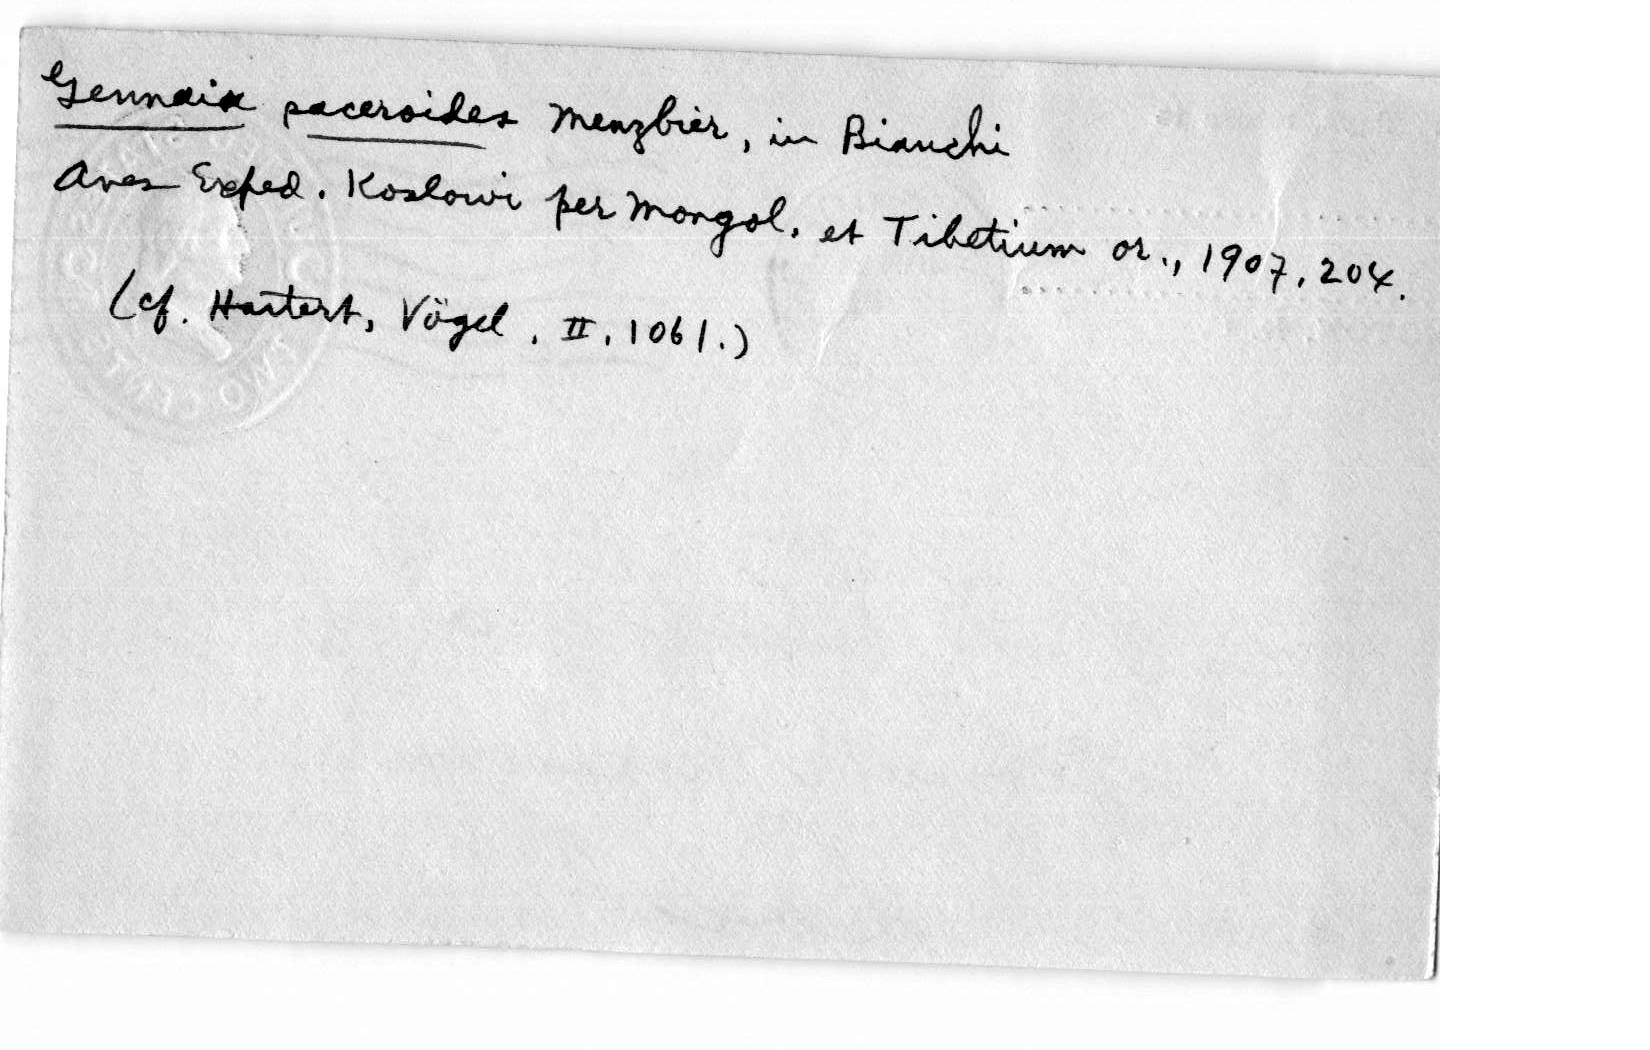 Gennaia saceroides Menzbier, in Bianchi
Aves Exped. Koslowi per Mongol. et Tibetium or., 1907, 204.
(cf. Hartert, Vögel. II. 1061.)
TWO CENTS